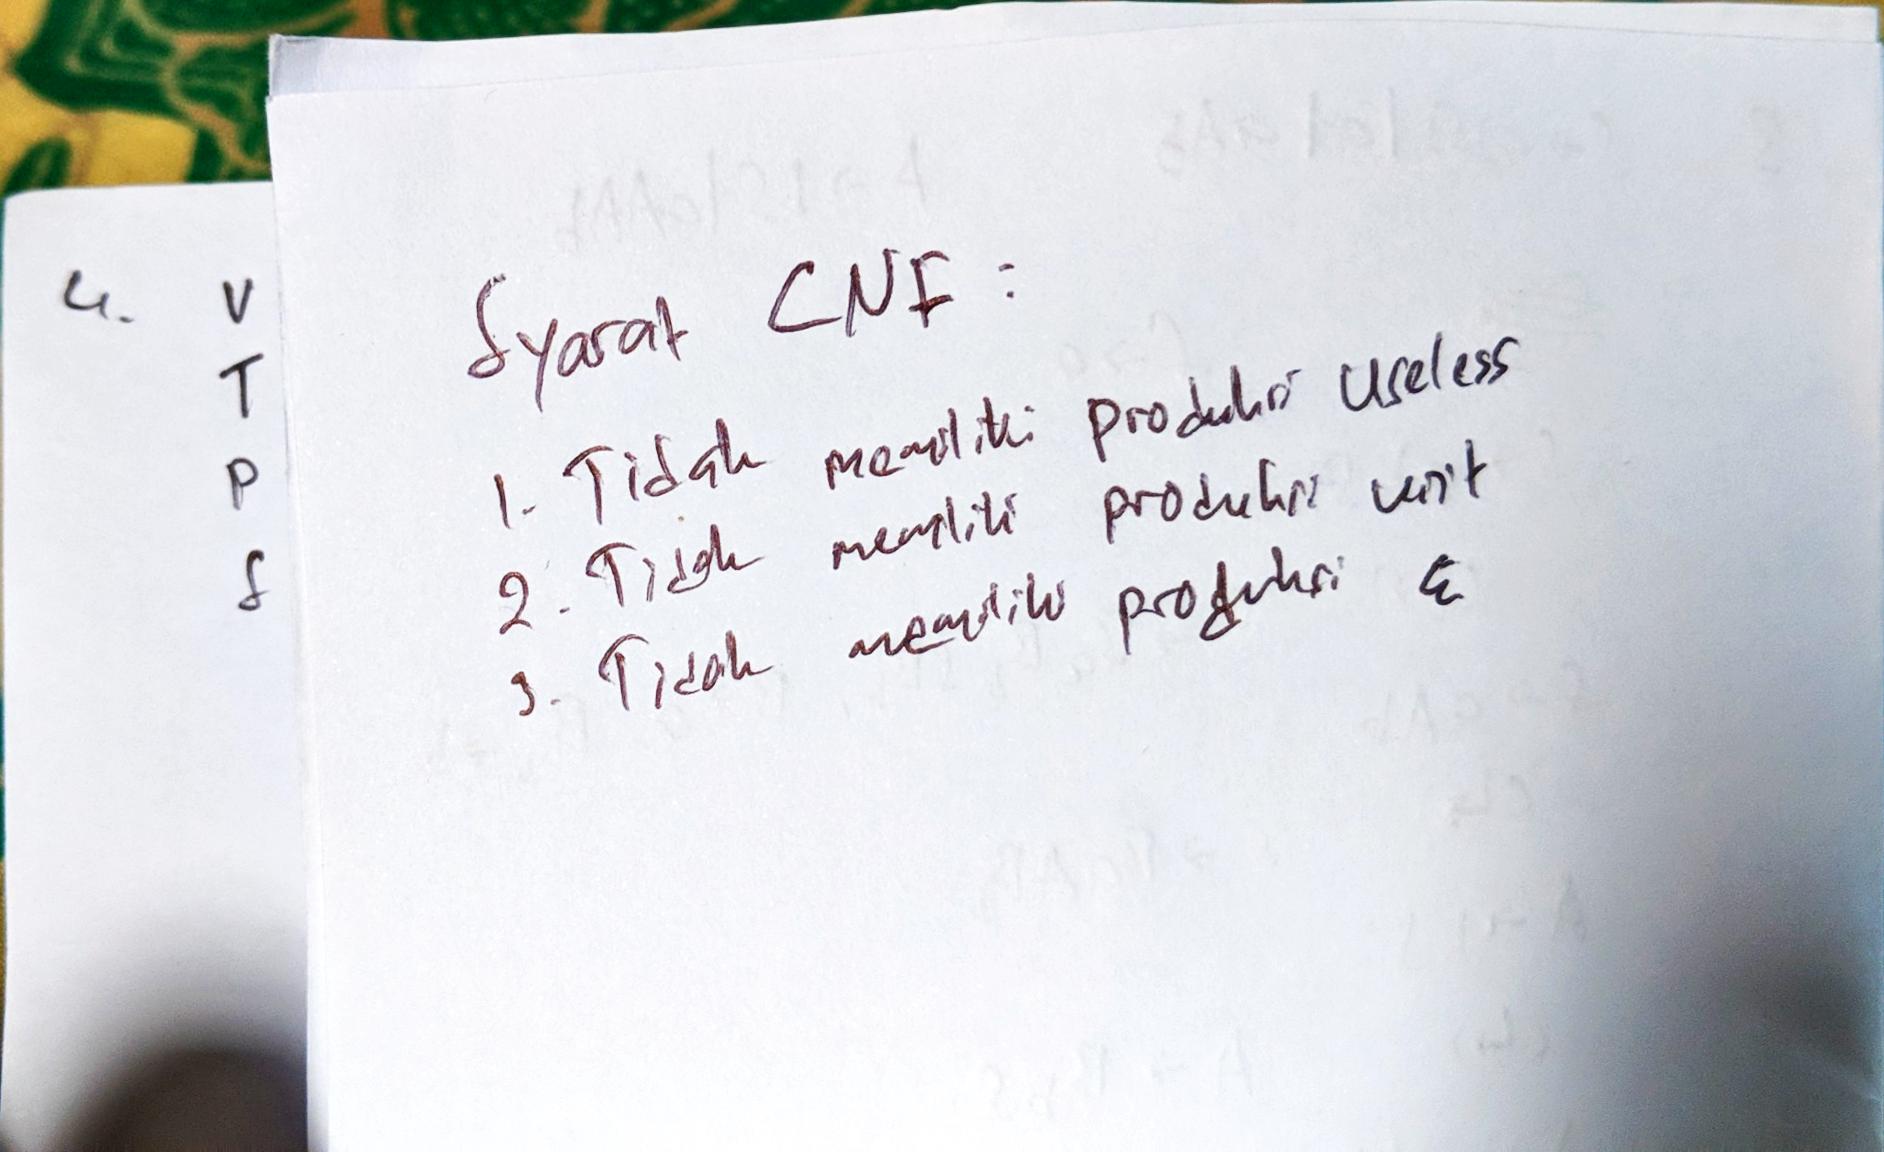 4. V
T
P
S
Syarat CNF :
1. Tidak memiliki produksi Useless
2. Tidak memiliki produksi unit
3. Tidak memiliki produksi ε